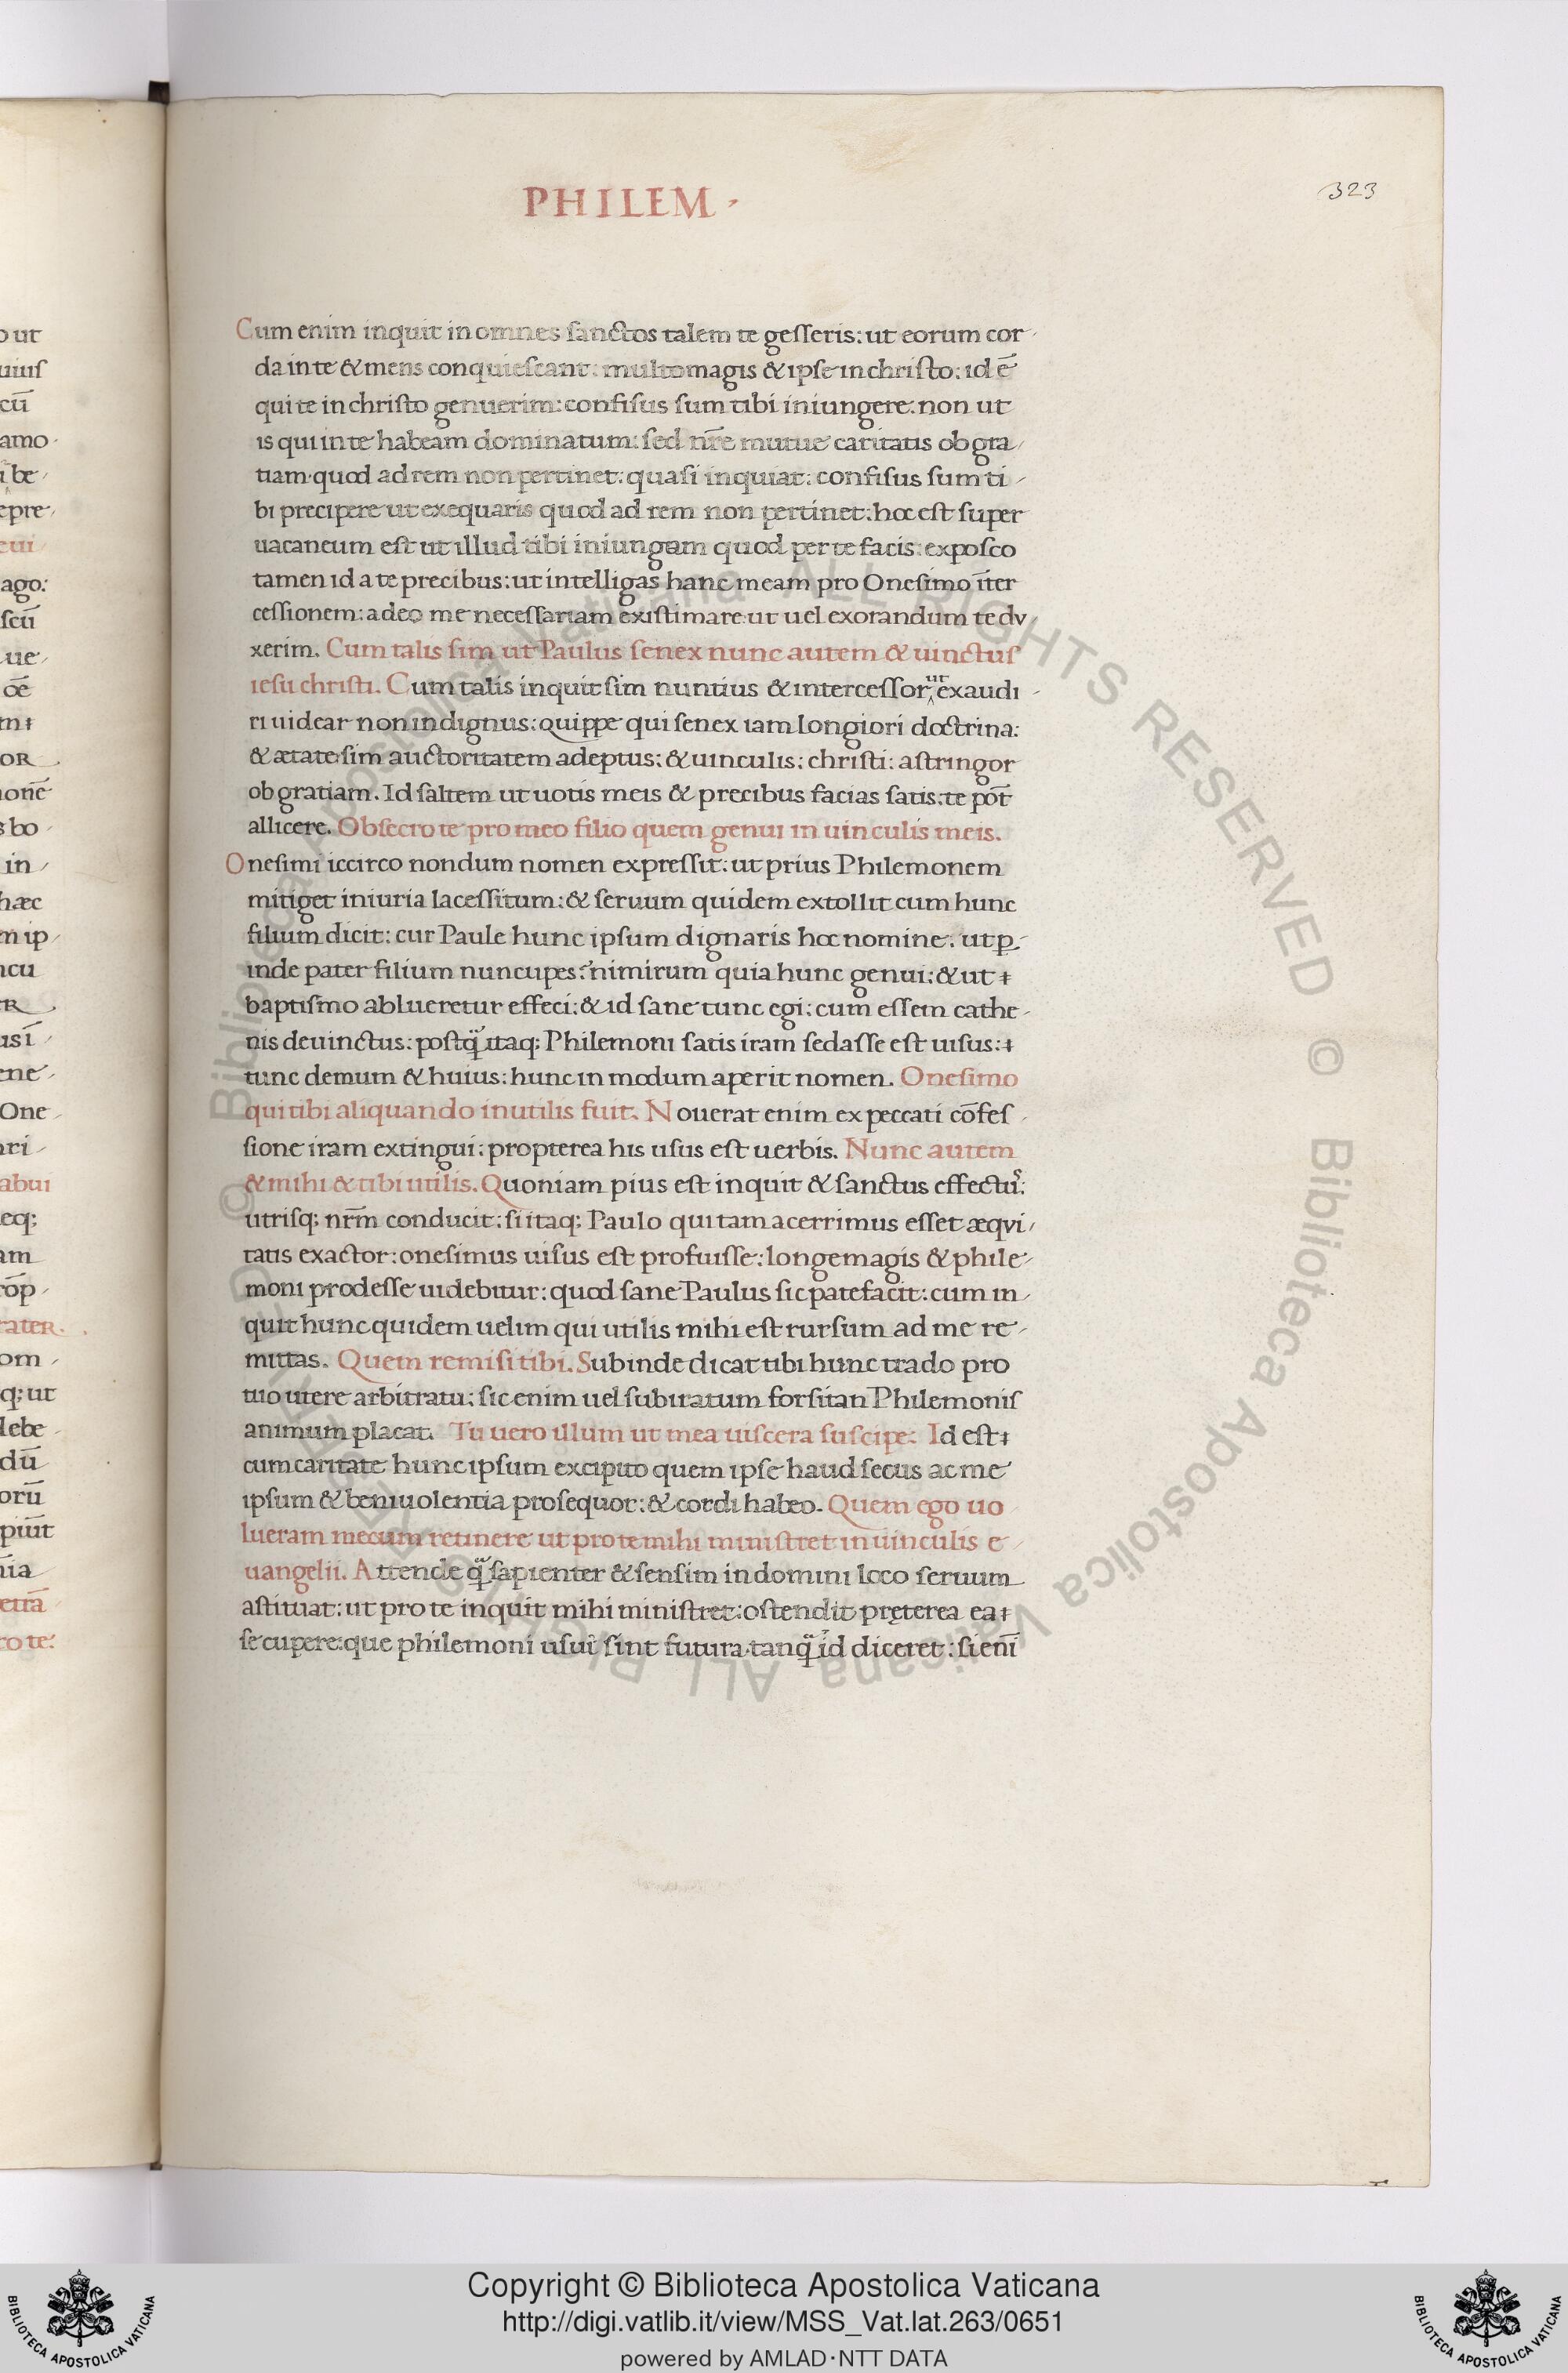 PHILEM ·
323
Cum enim inquit in omnes sanctos talem te gesseris: ut eorum cor-
da in te & mens conquiescant: multo magis & ipse in christo: id ē
qui te in christo genuerim: confisus sum tibi iniungere: non ut
is qui in te habeam dominatum: sed nr̄e mutue caritatis ob gra-
tiam· quod ad rem non pertinet: quasi inquiat: confisus sum ti-
bi precipere ut exequaris quod ad rem non pertinet: hoc est super
uacaneum est ut illud tibi iniungam quod per te facis: exposco
tamen id a te precibus: ut intelligas hanc meam pro Onesimo īter
cessionem: adeo me necessariam existimare: ut uel exorandum te dv-
xerim. Cum talis sim ut Paulus senex nunc autem & uinctus
iesu christi. Cum talis inquit sim nuntius & intercessor ut exaudi-
ri uidear non indignus: quippe qui senex iam longiori doctrina:
& ætate sim auctoritatem adeptus: & uinculis: christi: astringor
ob gratiam. Id saltem ut uotis meis & precibus facias satis: te pot̄
allicere. Obsecro te pro meo filio quem genui in uinculis meis.
Onesimi iccirco nondum nomen expressit: ut prius Philemonem
mitiget iniuria lacessitum: & seruum quidem extollit cum hunc
filium dicit: cur Paule hunc ipsum dignaris hoc nomine. ut ꝑ-
inde pater filium nuncupes? nimirum quia hunc genui: & ut
baptismo ablueretur effeci: & id sane tunc egi: cum essem cathe-
nis deuinctus: postq̄ itaq; Philemoni satis iram sedasse est uisus:
tunc demum & huius: hunc in modum aperit nomen. Onesimo
qui tibi aliquando inutilis fuit. Nouerat enim ex peccati cōfes-
sione iram extingui: propterea his usus est uerbis. Nunc autem
& mihi & tibi utilis. Quoniam pius est inquit & sanctus effectuˢ:
utrisq; nr̄m conducit: si itaq; Paulo qui tam acerrimus esset æqvi-
tatis exactor: onesimus uisus est profuisse: longe magis & phile-
moni prodesse uidebitur: quod sane Paulus sic patefacit: cum in-
quit hunc quidem uelim qui utilis mihi est rursum ad me re-
mittas. Quem remisi tibi. Subinde dicat tibi hunc trado pro
tuo utere arbitratu: sic enim uel subiratum forsitan Philemonis
animum placat. Tu uero illum ut mea uiscera suscipe: Id est
cum caritate hunc ipsum excipito quem ipse haud secus ac me
ipsum & beniuolentia prosequor: & cordi habeo. Quem ego uo
lueram mecum retinere ut pro te mihi ministret in uinculis e-
uangelii. Attende q̄ sapienter & sensim in domini loco seruum
astituat: ut pro te inquit mihi ministret: ostendit pręterea ea
se cupere: que philemoni usui sint futura· tanq̄ id diceret: si eni̅
Copyright © Biblioteca Apostolica Vaticana
http://digi.vatlib.it/view/MSS_Vat.lat.263/0651
powered by AMLAD·NTT DATA